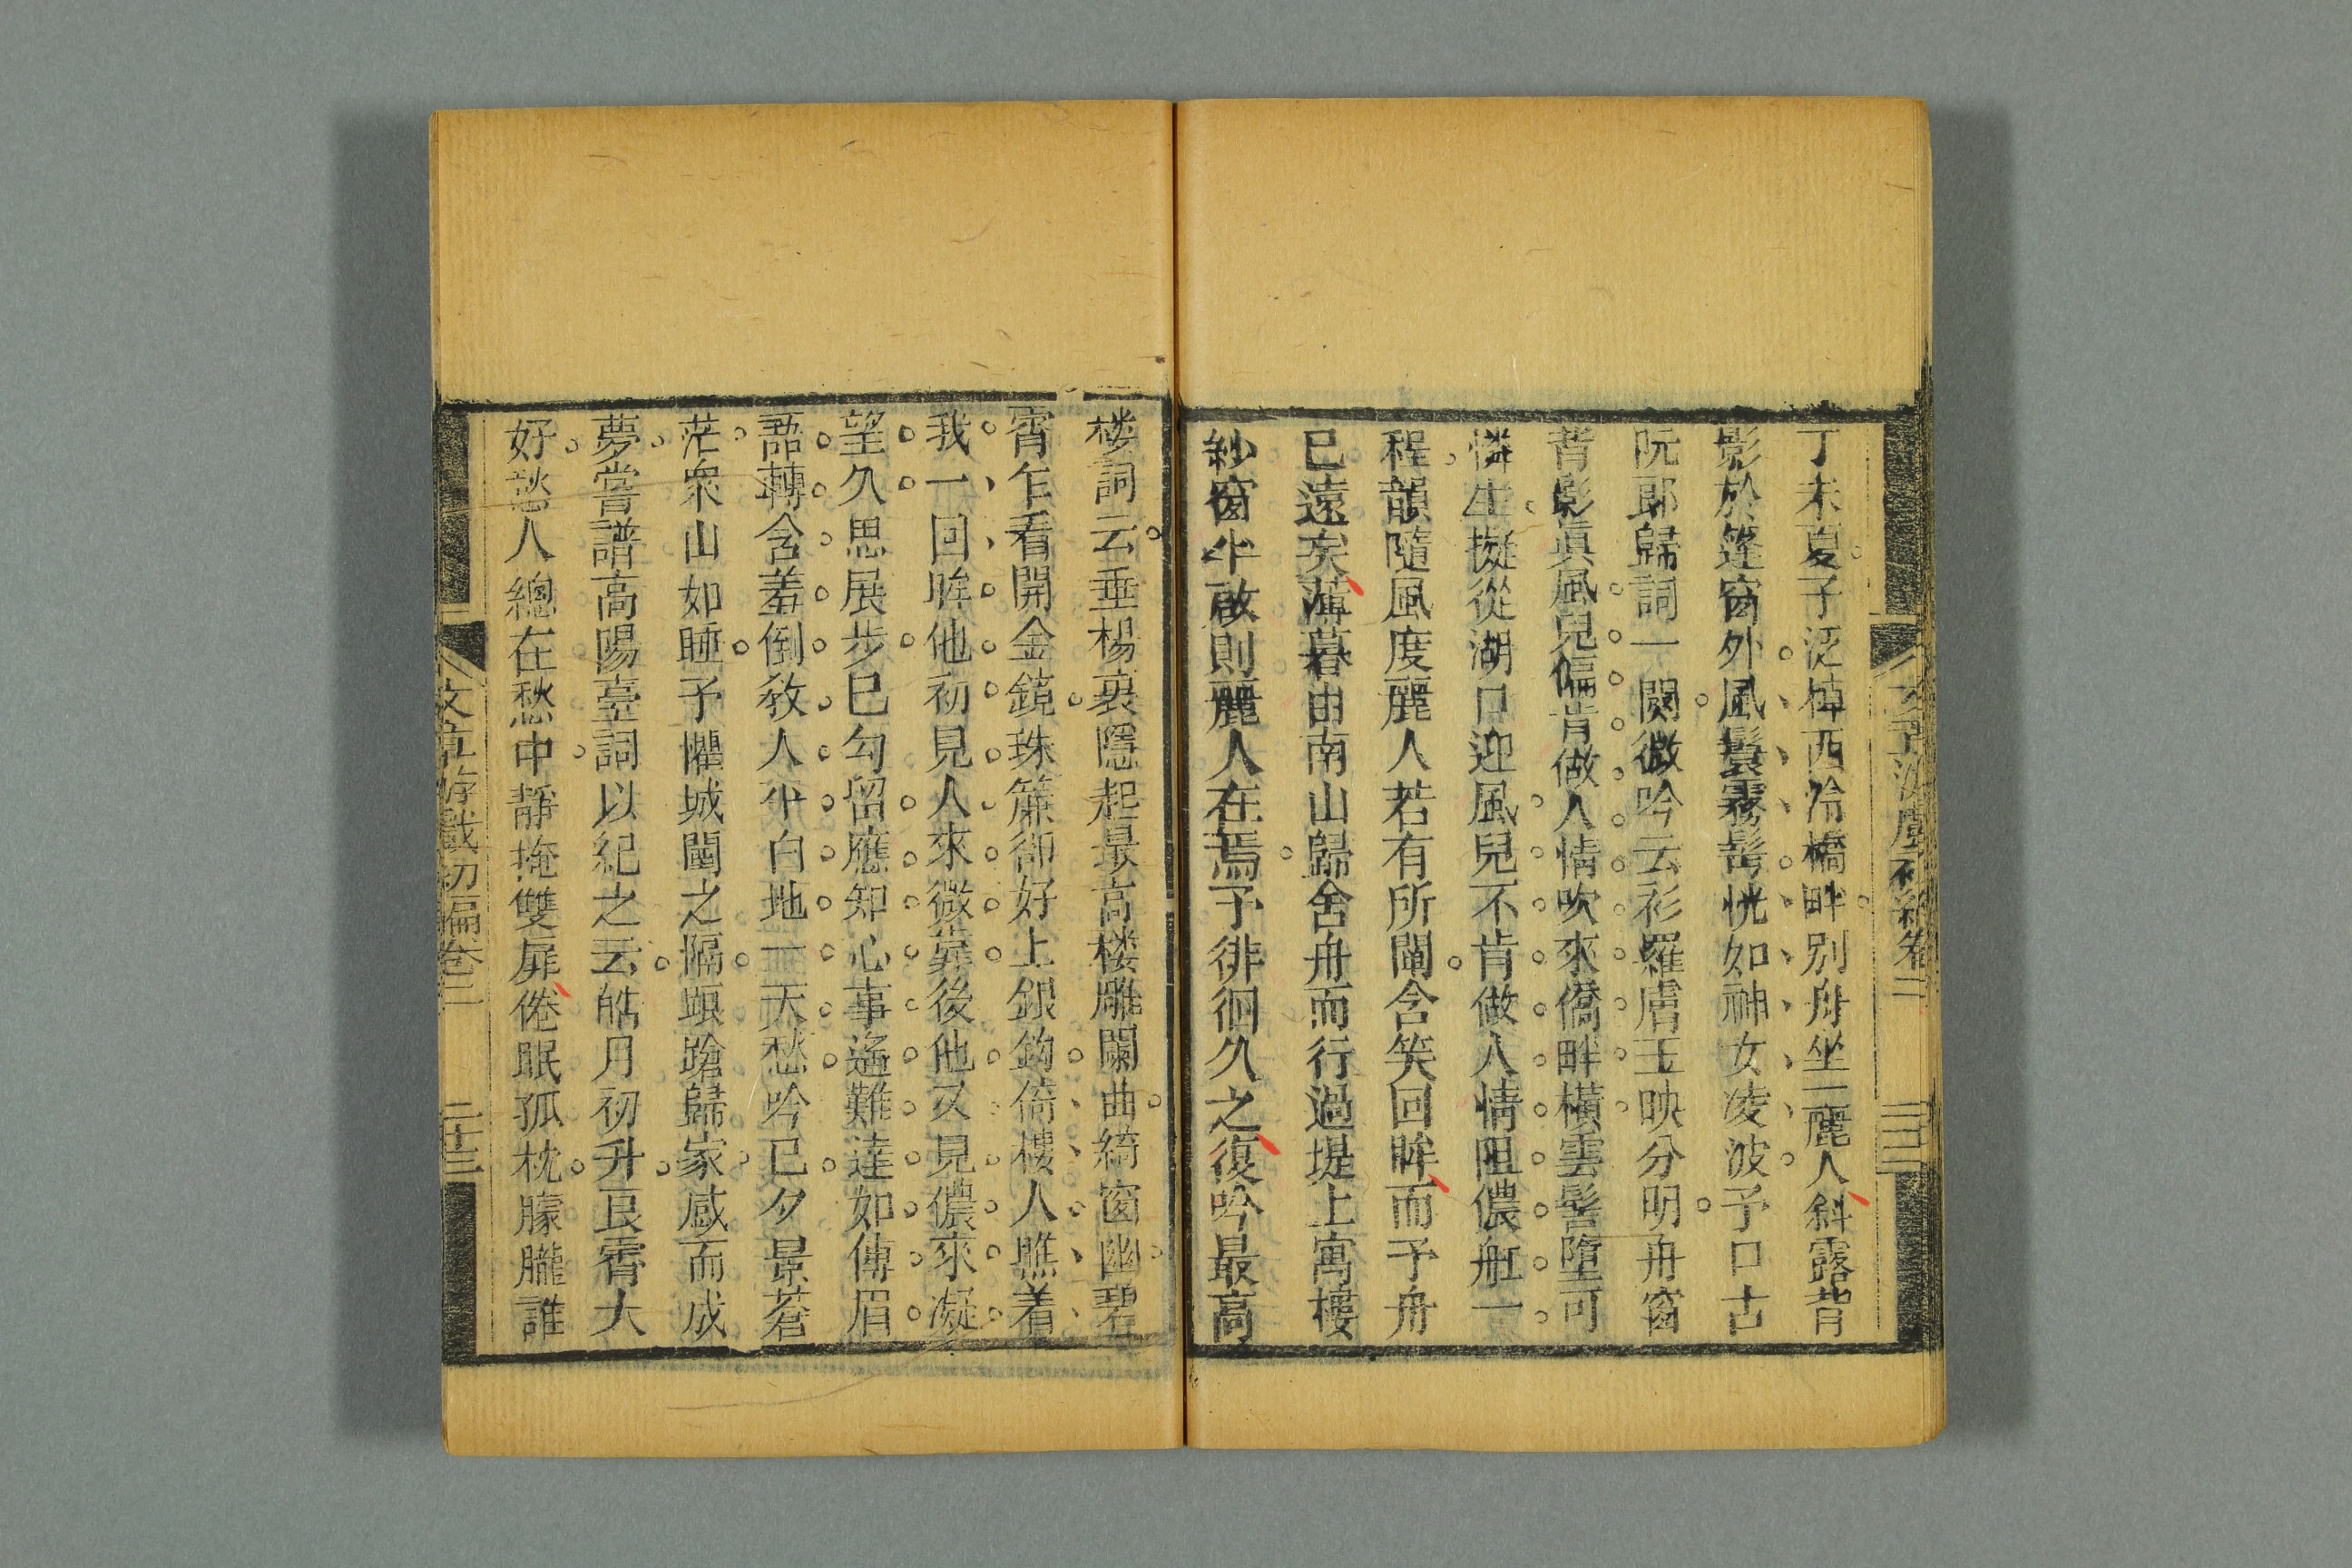 丁未夏子泛棹西泠橋畔別舟坐一麗人斜露背
影於篷窗外風鬟霧髻恍如神女凌波予口占
阮郎歸詞一闋微吟云衫羅膚玉映分明舟窗
背影真風兒偏肯做人情吹來僑畔橫雲髻墮可
憐生擬從湖口迎風兒不肯做人情阻儂舡一
程韻隨風度麗人若有所聞含笑回眸而予舟
已遠矣薄暮由南山歸舍舟而行過堤上寓樓
紗窗半啟則麗人在焉予徘徊久之復吟最高
楼詞云垂楊裏隱起最高楼雕闌曲綺窗幽碧
霄乍看開金鏡珠簾卻好上銀鉤倚樓人瞧着
我一回眸他初見人來微靠後他又見儂來凝
望久思展步已勾留應知心事遙難達如傳眉
語轉含羞倒敎人平白地一天愁吟已夕景蒼
茫衆山如睡予懼城闉之隔踉蹌歸家感而成
夢嘗譜高陽臺詞以紀之云皓月初升良霄大
好愁人總在愁中靜掩雙扉倦眠孤枕朦朧誰
文章游戲初編卷二
二十三